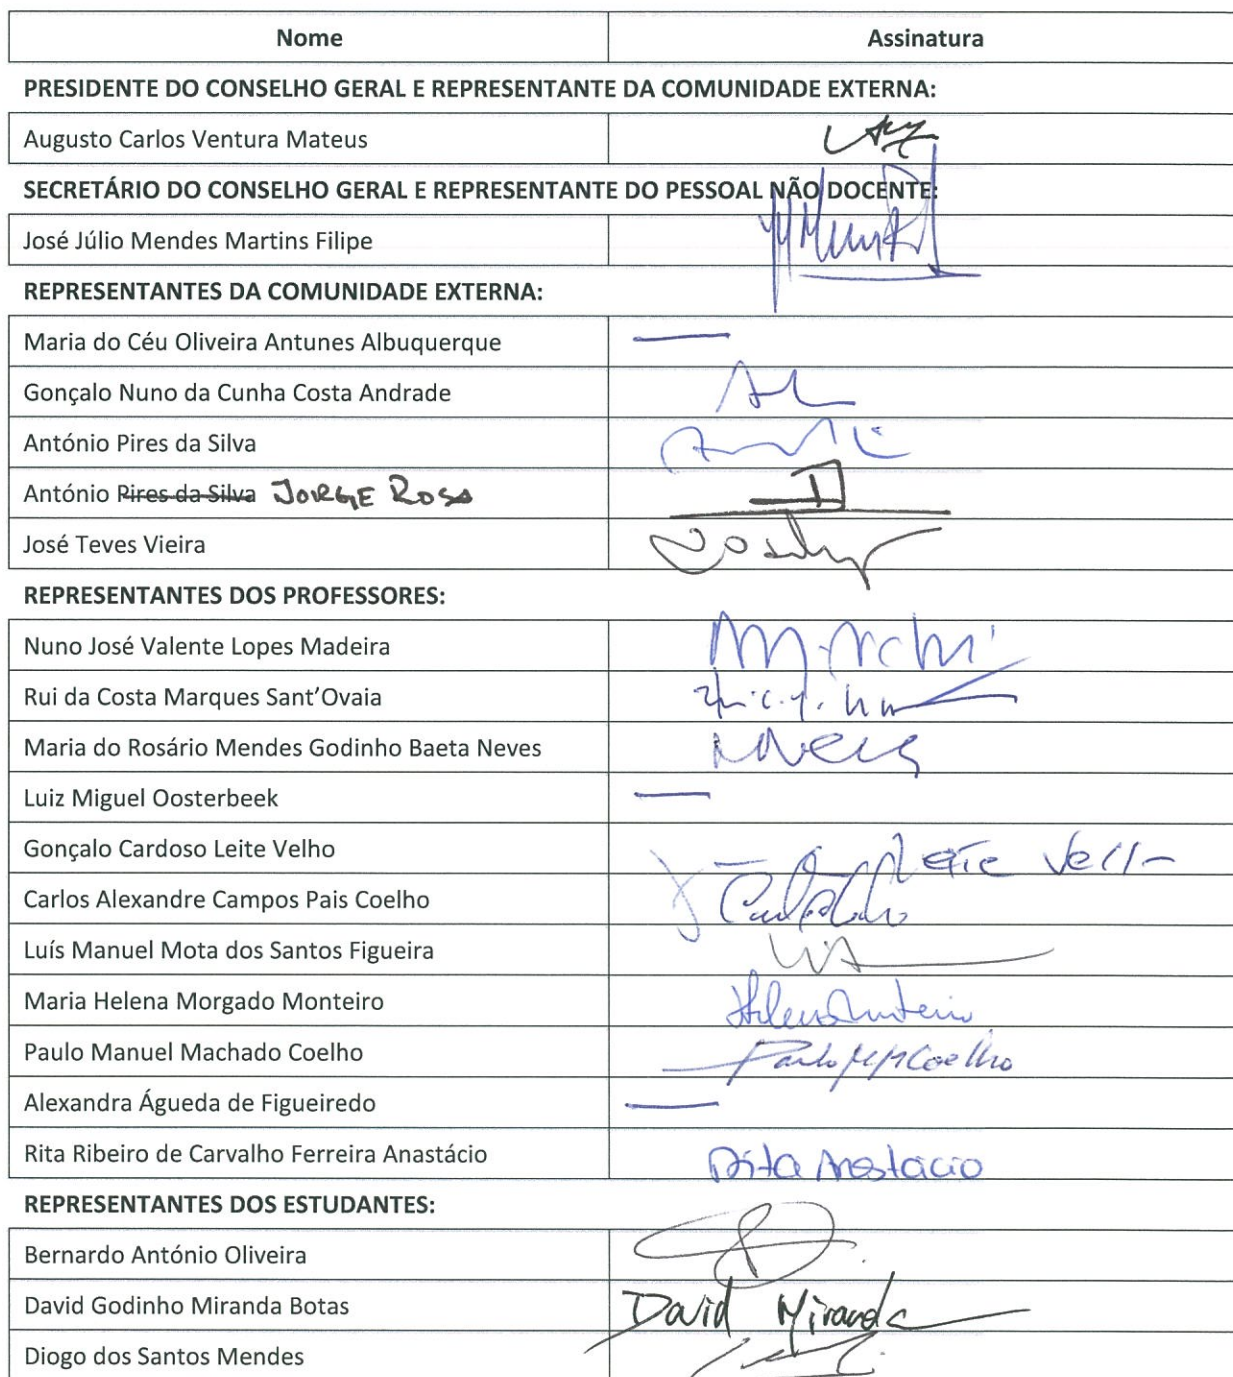 Nome Assinatura
PRESIDENTE DO CONSELHO GERAL E REPRESENTANTE DA COMUNIDADE EXTERNA:
Augusto Carlos Ventura Mateus
SECRETÁRIO DO CONSELHO GERAL E REPRESENTANTE DO PESSOAL NÃO DOCENTE:
José Júlio Mendes Martins Filipe
REPRESENTANTES DA COMUNIDADE EXTERNA:
Maria do Céu Oliveira Antunes Albuquerque —
Gonçalo Nuno da Cunha Costa Andrade
António Pires da Silva
António Pires da Silva JORGE ROSA
José Teves Vieira
REPRESENTANTES DOS PROFESSORES:
Nuno José Valente Lopes Madeira
Rui da Costa Marques Sant’Ovaia
Maria do Rosário Mendes Godinho Baeta Neves
Luiz Miguel Oosterbeek —
Gonçalo Cardoso Leite Velho
Carlos Alexandre Campos Pais Coelho
Luís Manuel Mota dos Santos Figueira
Maria Helena Morgado Monteiro Helena Monteiro
Paulo Manuel Machado Coelho Paulo MM Coelho
Alexandra Águeda de Figueiredo —
Rita Ribeiro de Carvalho Ferreira Anastácio Rita Anastácio
REPRESENTANTES DOS ESTUDANTES:
Bernardo António Oliveira
David Godinho Miranda Botas David Miranda
Diogo dos Santos Mendes